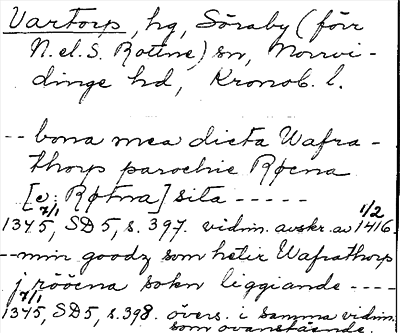 Vartorp, hg, Söraby (förr
N. el. S. Rottne) sn, Norrvi-
dinge hd, Kronob. l.
-- bona mea dicta Wafra-
thorp parochie Røcna
[e. Røtna] sita -----
1345 7/1, SD 5, s. 397. vidim. avskr. av 1/2 1416.
-- min goodz som hetir Wafrathorp
j rööcna sokn liggiande ----
1345 7/1, SD 5, s. 398. övers. i samma vidim.
som ovanstående.